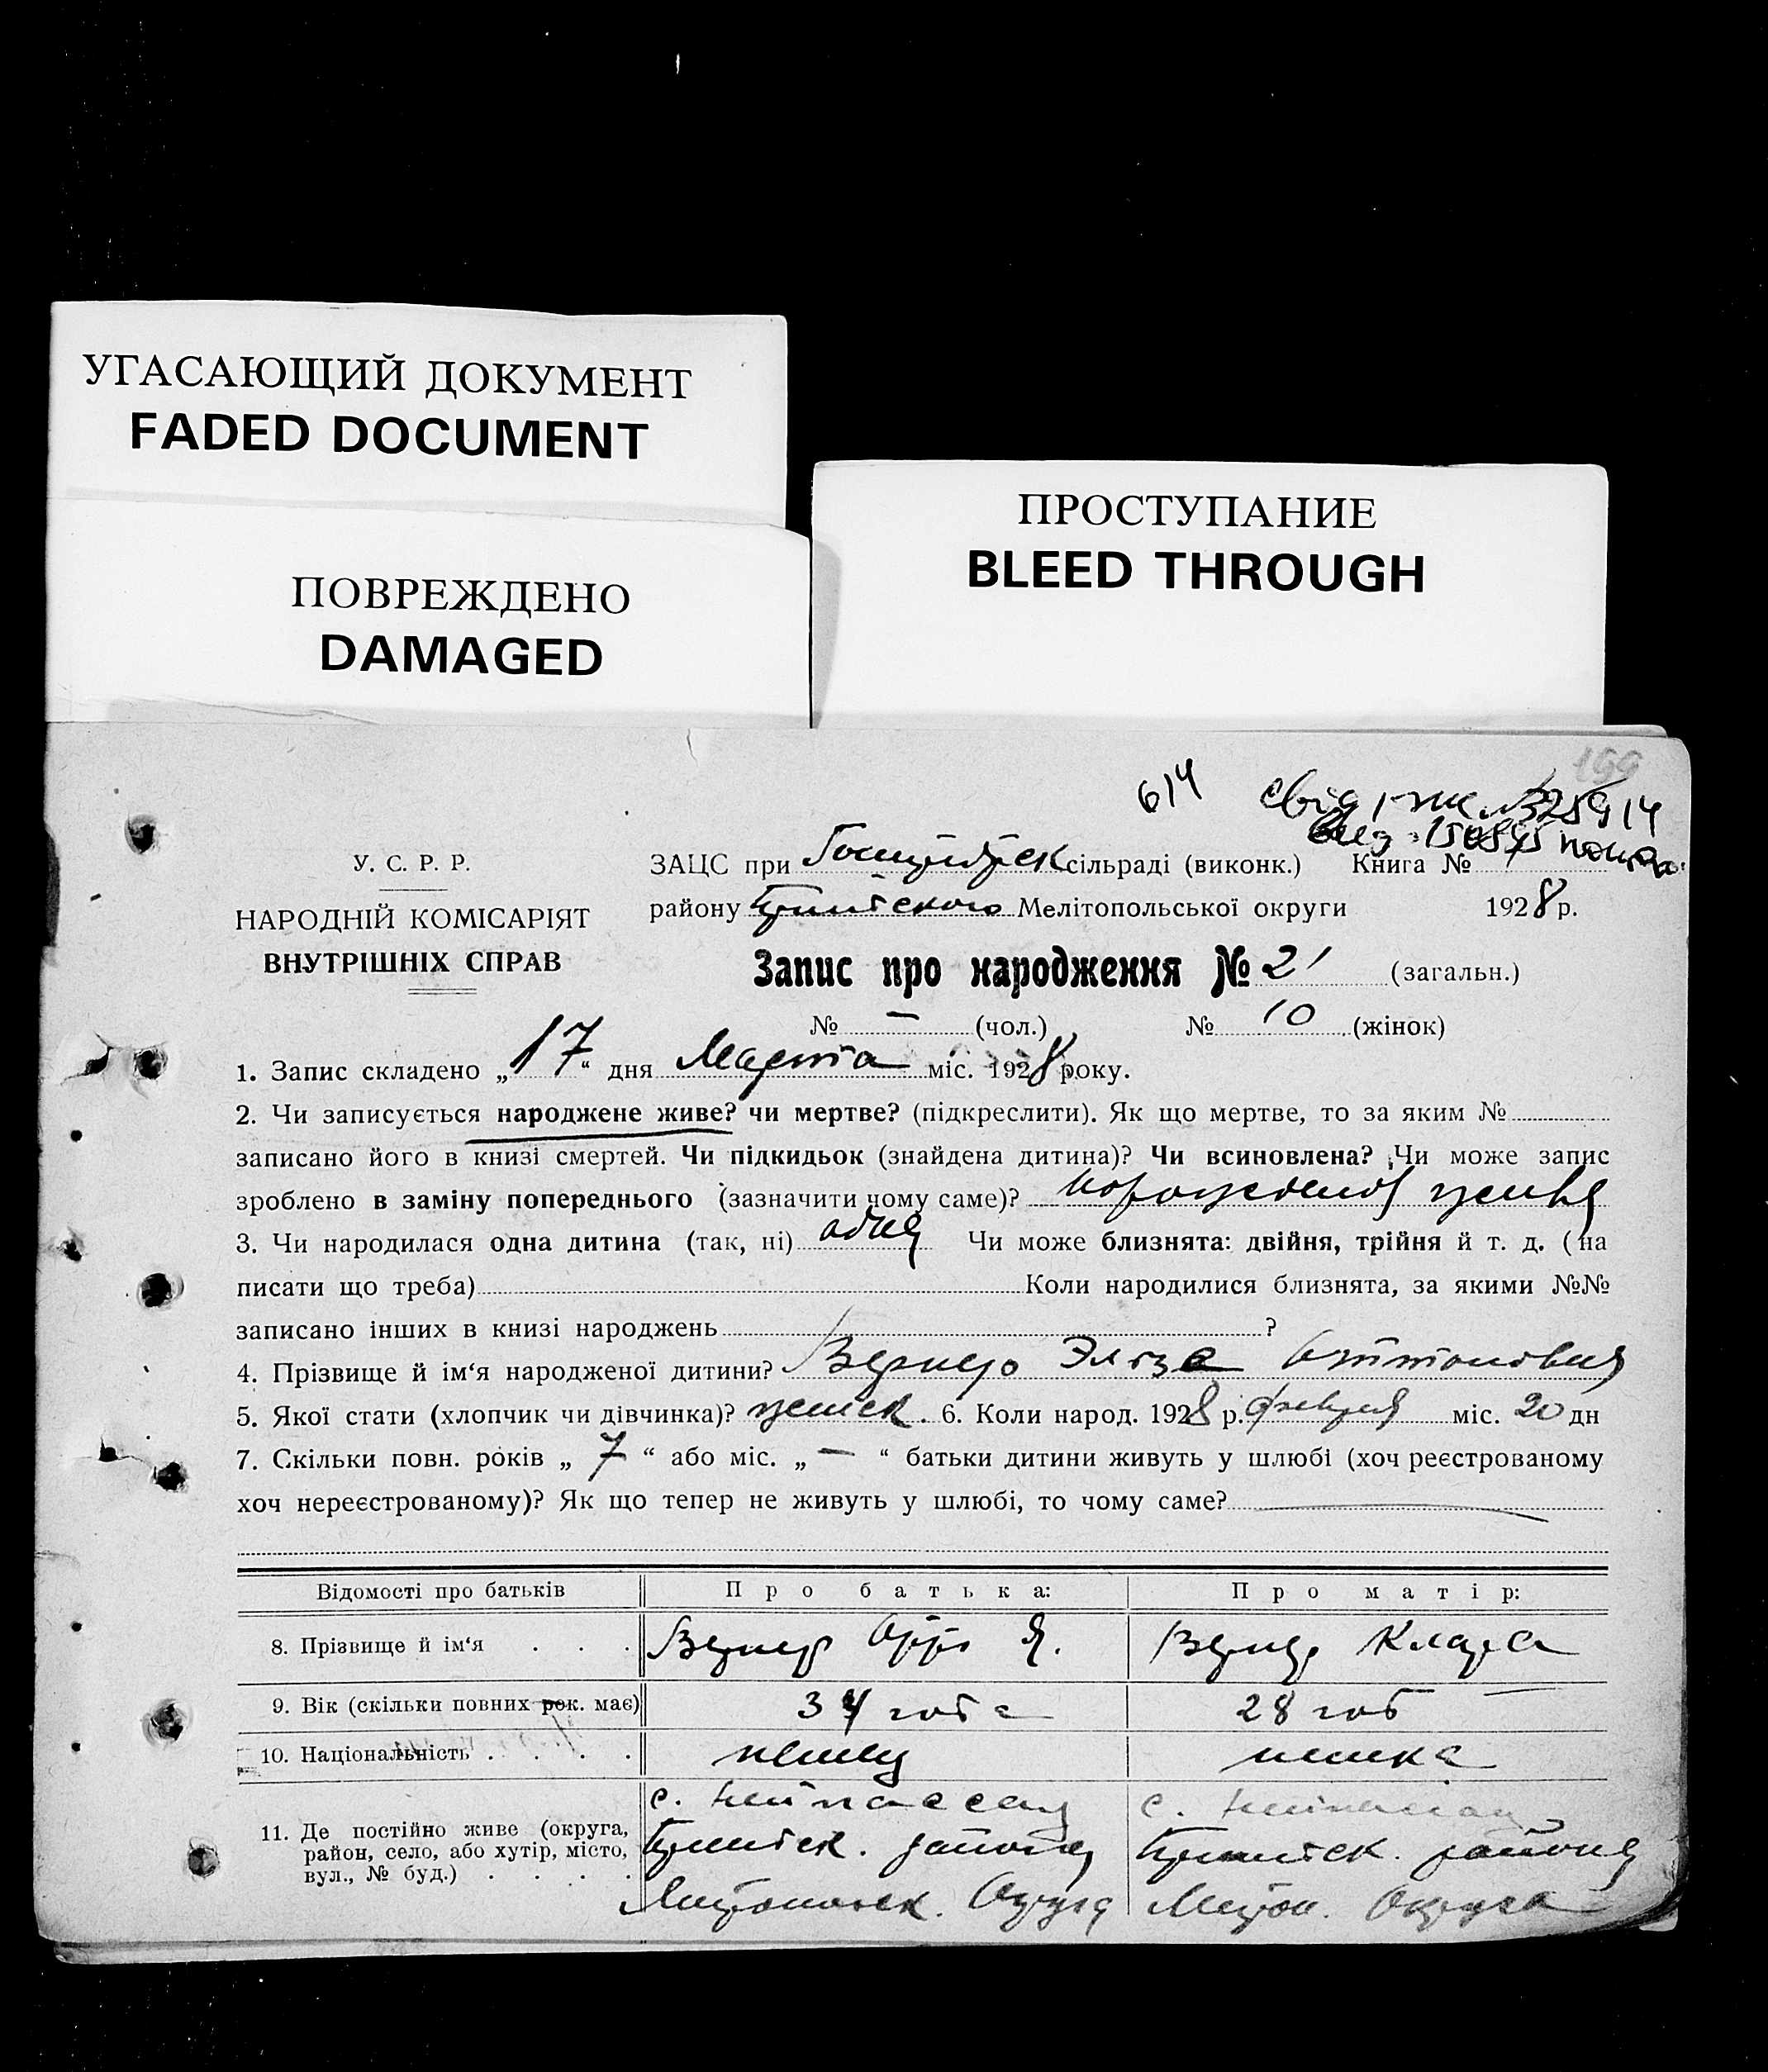 УГАСАЮЩИЙ ДОКУМЕНТ
FADED DOCUMENT
ПРОСТУПАНИЕ
BLEED THROUGH
ПОВРЕЖДЕНО
DAMAGED
199
614
У. С. Р. Р.
НАРОДНІЙ КОМІСАРІЯТ
ВНУТРІШНІХ СПРАВ
ЗАЦС при сільраді (виконк.) Книга №
району Мелітопольської округи 1928 р.
Запис про народження № 21 (загальн.)
№ — (чол.) № 10 (жінок)
1. Запис складено „17“ дня Марта міс. 1928 року.
2. Чи записується народжене живе? чи мертве? (підкреслити). Як що мертве, то за яким №
записано його в книзі смертей. Чи підкидьок (знайдена дитина)? Чи всиновлена? Чи може запис
зроблено в заміну попереднього (зазначити чому саме)?
3. Чи народилася одна дитина (так, ні) Чи може близнята: двійня, трійня й т. д. (на
писати що треба) Коли народилися близнята, за якими №№
записано інших в книзі народжень ?
4. Прізвище й ім‘я народженої дитини? Вернер Эльза Оттоновна
5. Якої стати (хлопчик чи дівчинка)? женск. 6. Коли народ. 1928 р. февраля міс. 20 дн
7. Скільки повн. років „ 7 “ або міс. „ — “ батьки дитини живуть у шлюбі (хоч реєстрованому
хоч нереєстрованому)? Як що тепер не живуть у шлюбі, то чому саме?
Відомості про батьків Про батька: Про матір:
8. Прізвище й ім‘я . . . Вернер Отто Я. Вернер Клара
9. Вік (скільки повних рок. має) 34 года 28 год
10. Національність . . . . немец немка
11. Де постійно живе (округа,
район, село, або хутір, місто,
вул., № буд.) . . . .
с. Нейнассау с. Нейнассау
района района
Мелитопольск. Округа Мелитоп. Округа